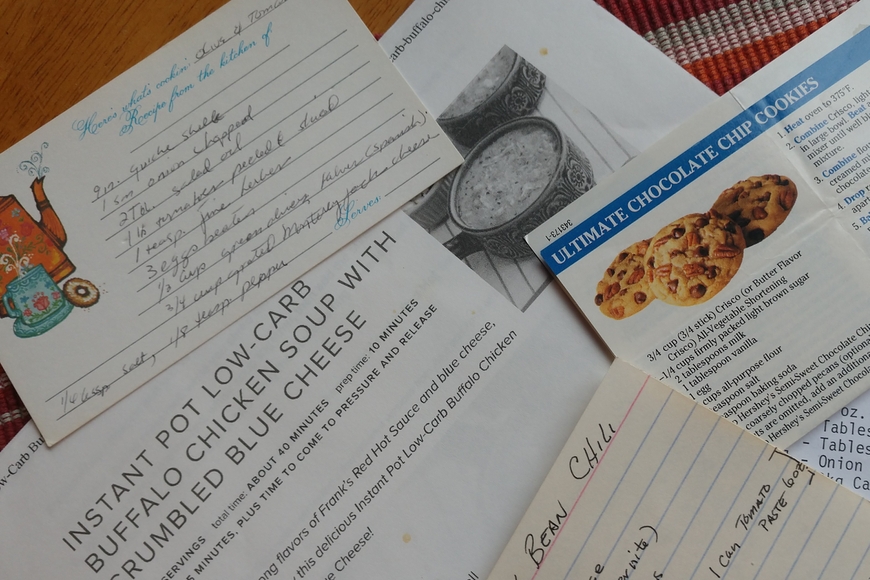 Here's what's cookin: Olive & Toma
Recipe from the kitchen of
9 in. quiche shell
1 sm onion chopped
2 Tbl salad oil
1 lb tomatoes peeled & sliced
1 teasp. fine herbs
3 eggs beaten
1/3 cup green olives, halves (Spanish)
3/4 cup grated Monterey Jack cheese
Serves
1/4 tsp salt, 1/8 tsp pepper
arb-buffalo-chi
INSTANT POT LOW-CARB
BUFFALO CHICKEN SOUP WITH
CRUMBLED BLUE CHEESE
SERVINGS total time: ABOUT 40 MINUTES prep time: 10 MINUTES
5 MINUTES, PLUS TIME TO COME TO PRESSURE AND RELEASE
ong flavors of Frank's Red Hot Sauce and blue cheese,
this delicious Instant Pot Low-Carb Buffalo Chicken
e Cheese!
w-Carb Bu
343173-1
ULTIMATE CHOCOLATE CHIP COOKIES
3/4 cup (3/4 stick) Crisco (or Butter Flavor
Crisco) All-Vegetable Shortening
-1/4 cups firmly packed light brown sugar
2 tablespoons milk
1 tablespoon vanilla
1 egg
cups all-purpose flour
easpoon salt
aspoon baking soda
Hershey's Semi-Sweet Chocolate Chi
coarsely chopped pecans (optional
ts are omitted, add an additional
Hershey's Semi-Sweet Choco
1. Heat oven to 375°F.
2. Combine Crisco, light
in large bowl. Beat
mixer until well bl
mixture.
3. Combine flou
creamed m
chocolate
4. Drop
apart
5. Ba
BEAN CHILI
1 CAN TOMATO
PASTE 6 oz
oz.
Tables
- Tables
- Onion
Ca